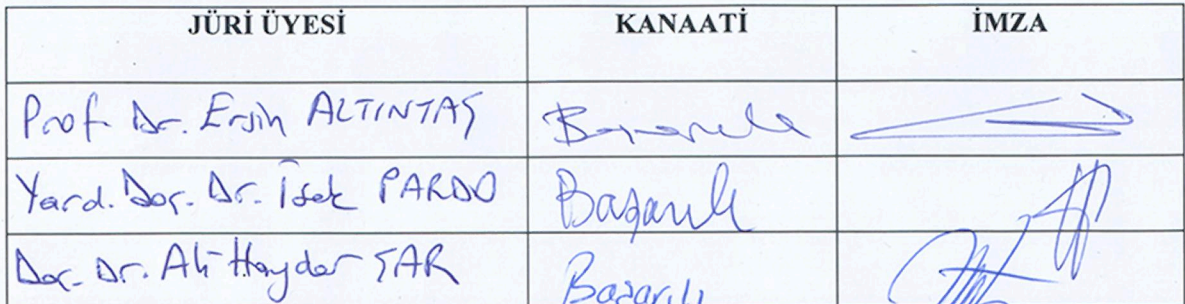 JÜRİ ÜYESİ KANAATİ İMZA
Prof. Dr. Ersin ALTINTAŞ Başarılı
Yard. Doç. Dr. İsak PARDO Başarılı
Doç. Dr. Ali Haydar ŞAR Başarılı